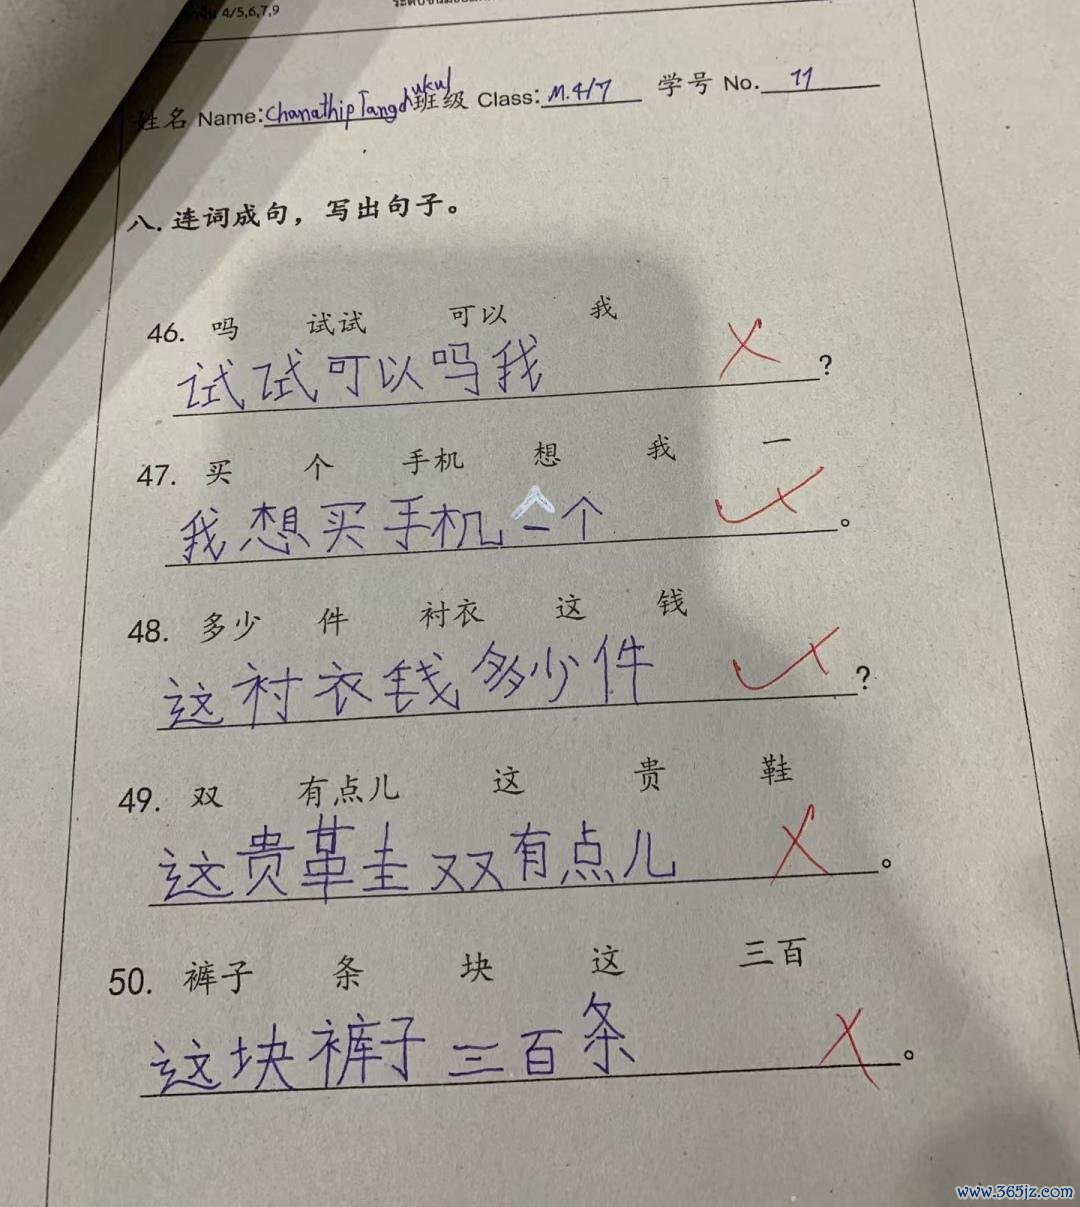 4/5,6,7,9
姓名 Name: Chanathip Tangchukul 班级 Class: M.4/7 学号 No. 11
八. 连词成句，写出句子。
46. 吗 试试 可以 我
试试可以吗我?
47. 买 个 手机 想 我 一
我想买手机一个。
48. 多少 件 衬衣 这 钱
这衬衣钱多少件?
49. 双 有点儿 这 贵 鞋
这贵鞋双有点儿。
50. 裤子 条 块 这 三百
这块裤子三百条。
www.365jz.com